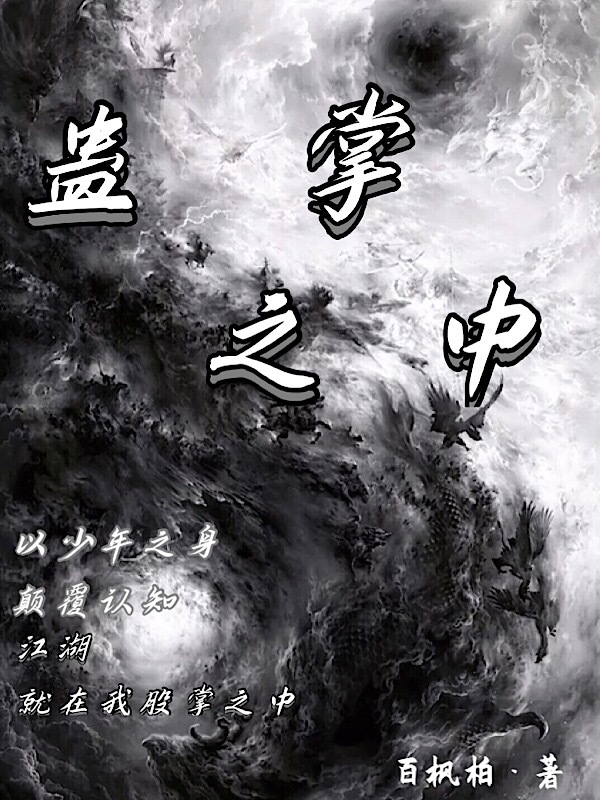 蛊掌
之中
以少年之身
颠覆认知
江湖
就在我股掌之中
百枫柏·著